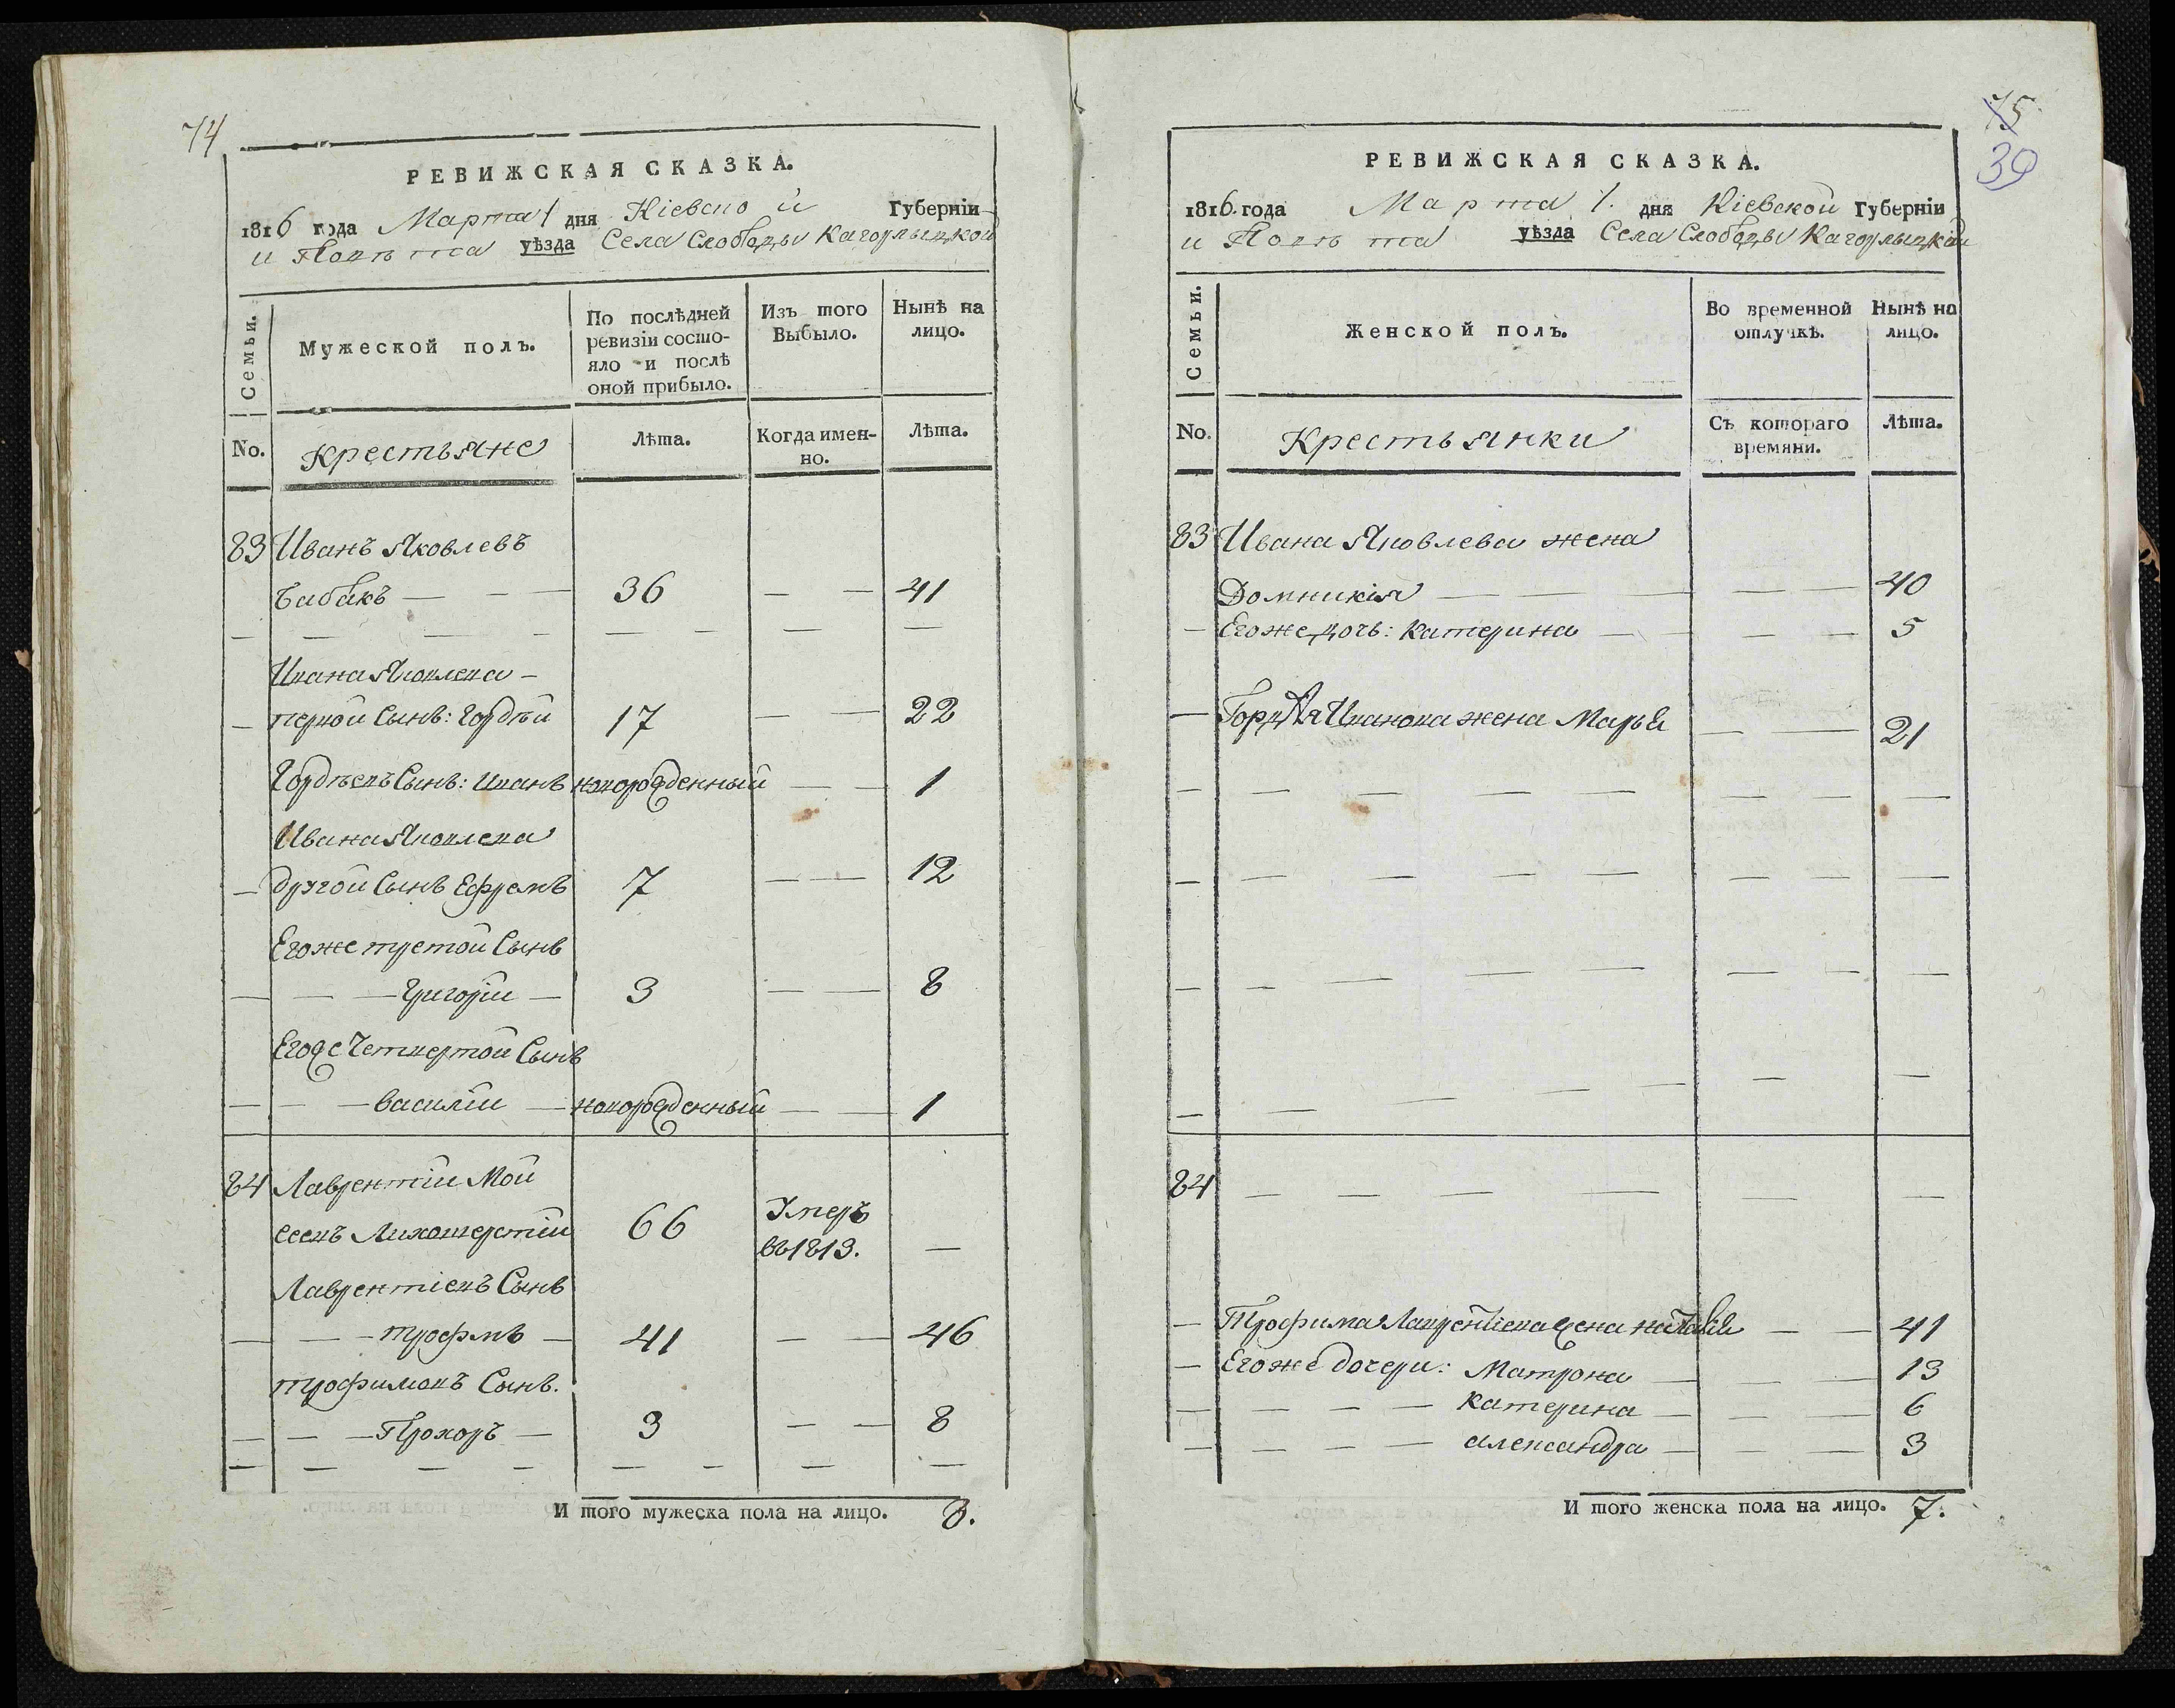 74
РЕВИЖСКАЯ СКАЗКА.
1816 года Марта 1 дня Кіевской Губерніи
и Повѣта уѣзда Села Слободы Кагорлыцкой
Семьи.
Мужеской полъ.
По послѣдней ревизіи состояло и послѣ оной прибыло.
Изъ того Выбыло.
Нынѣ на лицо.
No.
Крестьяне
Лѣта.
Когда именно.
Лѣта.
83 Иванъ Яковлевъ
Бабакъ — — — 36 — — 41
Ивана Яковлева —
— первой Сынъ: Гордѣй 17 — — 22
Гордѣевъ Сынъ: Иванъ новорожденный — — 1
Ивана Яковлева
— другой Сынъ Ефремъ 7 — — 12
Егоже третой Сынъ
— — — Григорій — 3 — — 8
Егоже Четвертой Сынъ
— — — Василій — новорожденный — — 1
84 Лаврентій Мой
сеевъ 66 Умеръ
въ 1813. —
Лаврентіевъ Сынъ
— — — Трофмъ — 41 — — 46
Трофимовъ Сынъ.
— — — Прохоръ — 3 — — 8
И того мужеска пола на лицо. 8.
75
39
РЕВИЖСКАЯ СКАЗКА.
1816. года Марта 1. дня Кіевской Губерніи
и Повѣта уѣзда Села Слободы Кагорлыцкой
Семьи.
Женской полъ.
Во временной отлучкѣ.
Нынѣ на лицо.
No.
Крестьянки
Съ котораго времяни.
Лѣта.
83 Ивана Яковлева жена
Домникія — — — — — 40
— Егоже дочь: Катерина — — — — 5
— Гордѣя Иванова жена Марья — — 21
84 — — — — — —
— Трофима Лаврентіева жена Наталія — — 41
— Егоже дочери: Матрона — — — 13
— — — — Катерина — — — 6
— — — — Александра — — — 3
И того женска пола на лицо. 7.